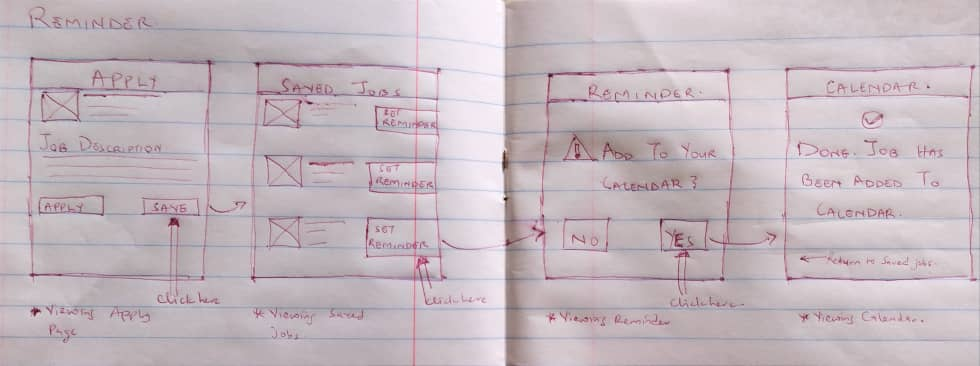 REMINDER.
APPLY
JOB DESCRIPTION
APPLY
SAVE
click here
* Viewing Apply
Page
SAVED JOBS
SET
REMINDER
SET
REMINDER
SET
REMINDER
click here
* Viewing Saved
Jobs.
REMINDER.
ADD TO YOUR
CALENDAR?
NO
YES
click here.
* Viewing Reminder
CALENDAR.
DONE. JOB HAS
BEEN ADDED TO
CALENDAR.
Return to Saved jobs.
* Viewing Calendar.